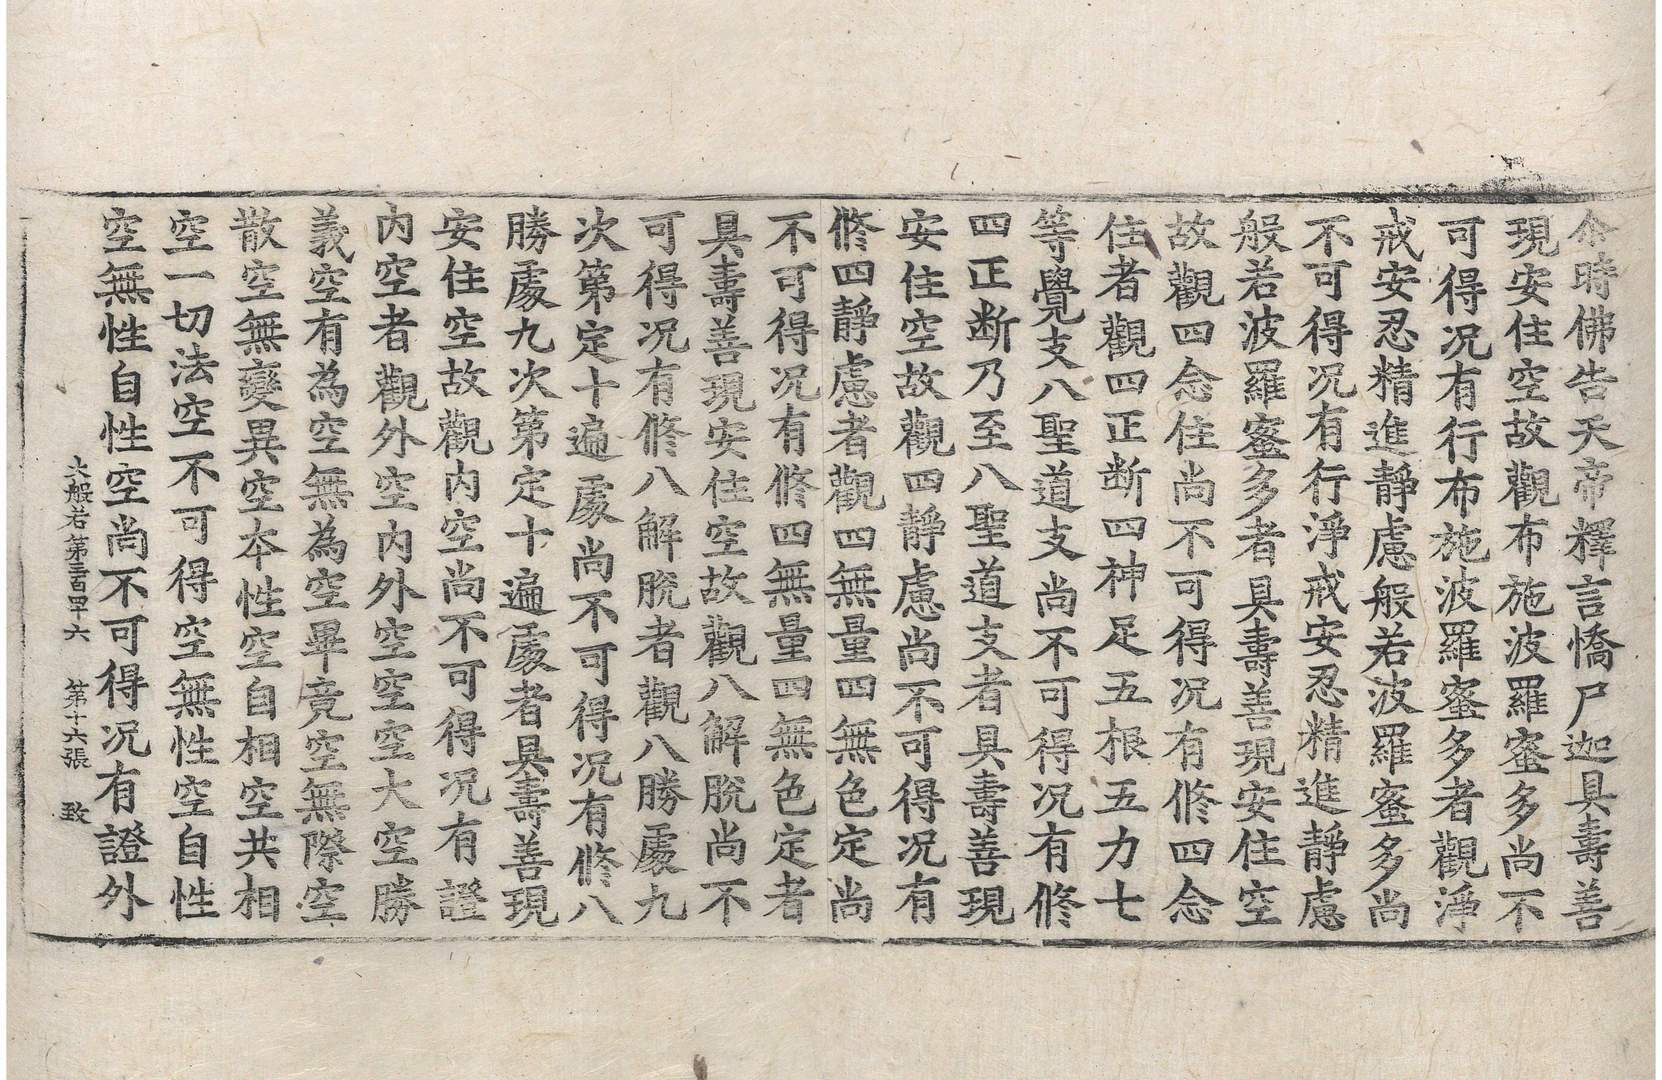 尒時佛告天帝釋言憍尸迦具壽善
現安住空故觀布施波羅蜜多尚不
可得况有行布施波羅蜜多者觀淨
戒安忍精進靜慮般若波羅蜜多尚
不可得况有行淨戒安忍精進靜慮
般若波羅蜜多者具壽善現安住空
故觀四念住尚不可得况有修四念
住者觀四正断四神足五根五力七
等覺支八聖道支尚不可得况有修
四正断乃至八聖道支者具壽善現
安住空故觀四靜慮尚不可得况有
修四靜慮者觀四無量四無色定尚
不可得况有修四無量四無色定者
具壽善現安住空故觀八解脫尚不
可得况有修八解脫者觀八勝處九
次第定十遍處尚不可得况有修八
勝處九次第定十遍處者具壽善現
安住空故觀內空尚不可得况有證
內空者觀外空內外空空空大空勝
義空有為空無為空畢竟空無際空
散空無變異空本性空自相空共相
空一切法空不可得空無性空自性
空無性自性空尚不可得况有證外
大般若第三百四十六 第十六張 致